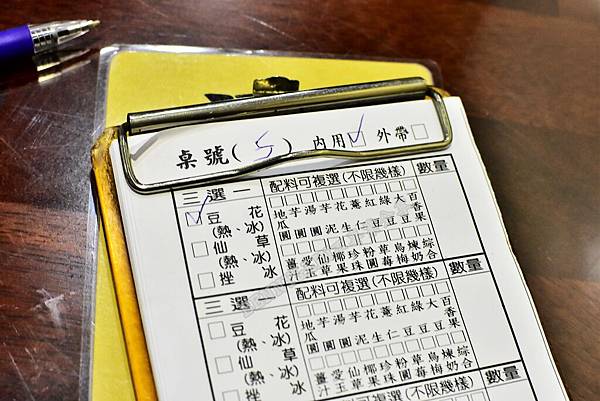 桌號( 5 ) 內用☑ 外帶☐
三選一 配料可複選(不限幾樣) 數量
☑豆花(熱、冰)
☐仙草(熱、冰)
☐挫冰
地瓜圓 芋圓 湯圓 芋泥 花生 薏仁 紅豆 綠豆 大豆 百香果
薑汁 愛玉 仙草 椰果 珍珠 粉圓 草莓 烏梅 煉奶 綜合
三選 配料可複選(不限幾樣) 數量
☐豆花(熱、冰)
☐仙草(熱、冰)
☐挫冰
地瓜圓 芋圓 湯圓 芋泥 花生 薏仁 紅豆 綠豆 大豆 百香果
薑汁 愛玉 仙草 椰果 珍珠 粉圓 草莓 烏梅 煉奶 綜合
配料可複選(不限幾樣) 數量